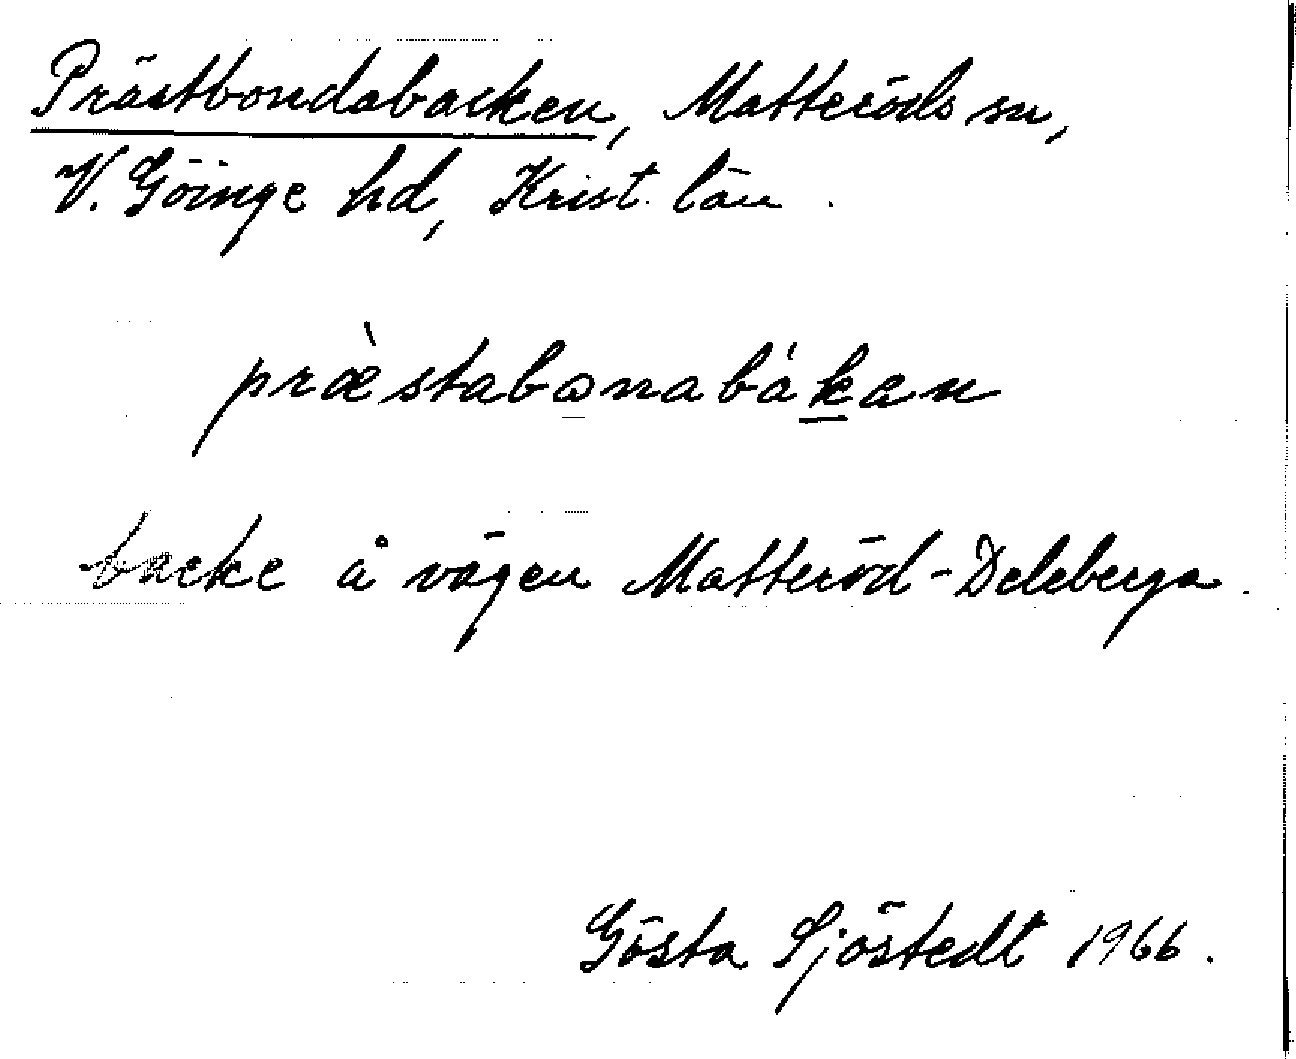 Prästbondabacken, Matteröds sn,
V. Göinge hd, Krist. län.
præ̀stabo̲nabák̲an
backe å vägen Matteröd-Deleberga.
Gösta Sjöstedt 1966.